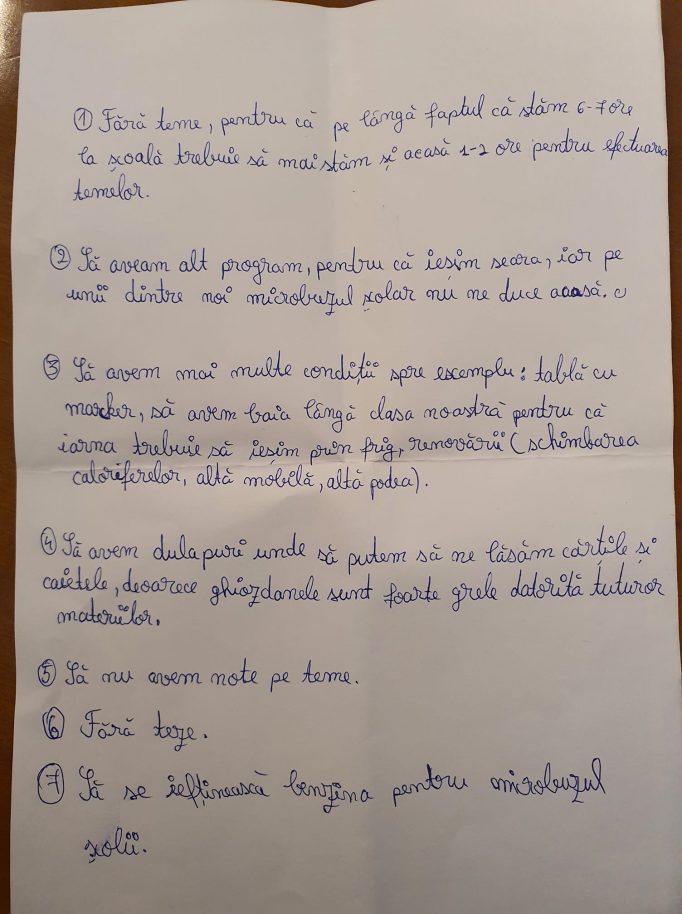 ① Fără teme, pentru că pe lângă faptul că stăm 6-7 ore
la școală trebuie să mai stăm și acasă 1-2 ore pentru efectuarea
temelor.
② Să aveam alt program, pentru că ieșim seara, iar pe
unii dintre noi microbuzul școlar nu ne duce acasă.
③ Să avem mai multe condiții spre exemplu: tablă cu
marker, să avem baia lângă clasa noastră pentru că
iarna trebuie să ieșim prin frig, renovării (schimbarea
caloriferelor, altă mobilă, altă podea).
④ Să avem dulapuri unde să putem să ne lăsăm cărțile și
caietele, deoarece ghiozdanele sunt foarte grele datorită tuturor
materiilor.
⑤ Să nu avem note pe teme.
⑥ Fără teze.
⑦ Să se ieftinească benzina pentru microbuzul
școlii.